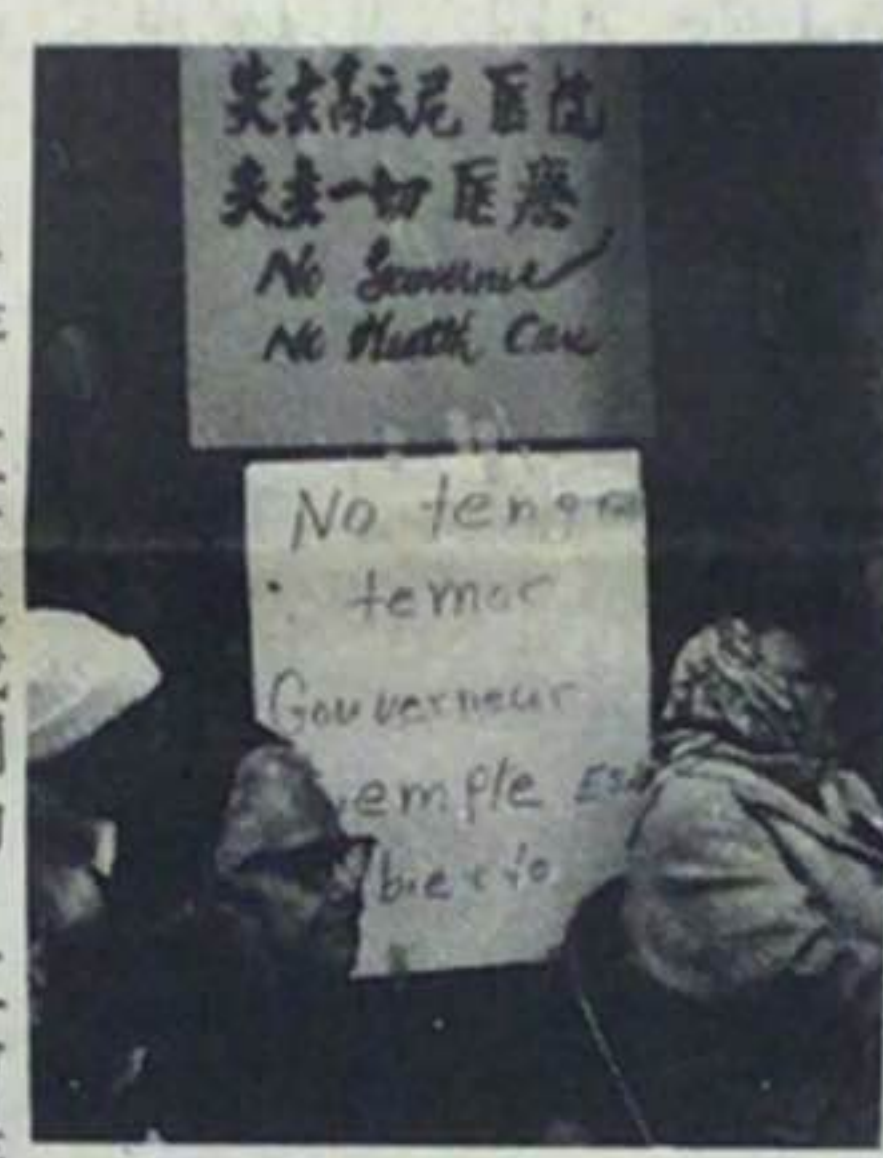 失去高云尼医院
失去一切医療
No Gouverneur
No Health Care
No tenga
temor
Gouverneur
emple Esta
bierto